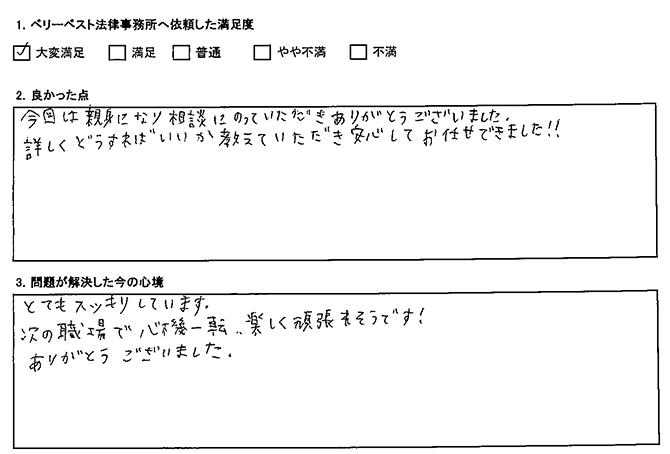 1. ベリーベスト法律事務所へ依頼した満足度
☑ 大変満足 □ 満足 □ 普通 □ やや不満 □ 不満
2. 良かった点
今回は親身になり相談にのっていただきありがとうございました。
詳しくどうすればいいか教えていただき安心してお任せできました!!
3. 問題が解決した今の心境
とてもスッキリしています。
次の職場で心機一転、楽しく頑張れそうです!
ありがとうございました。